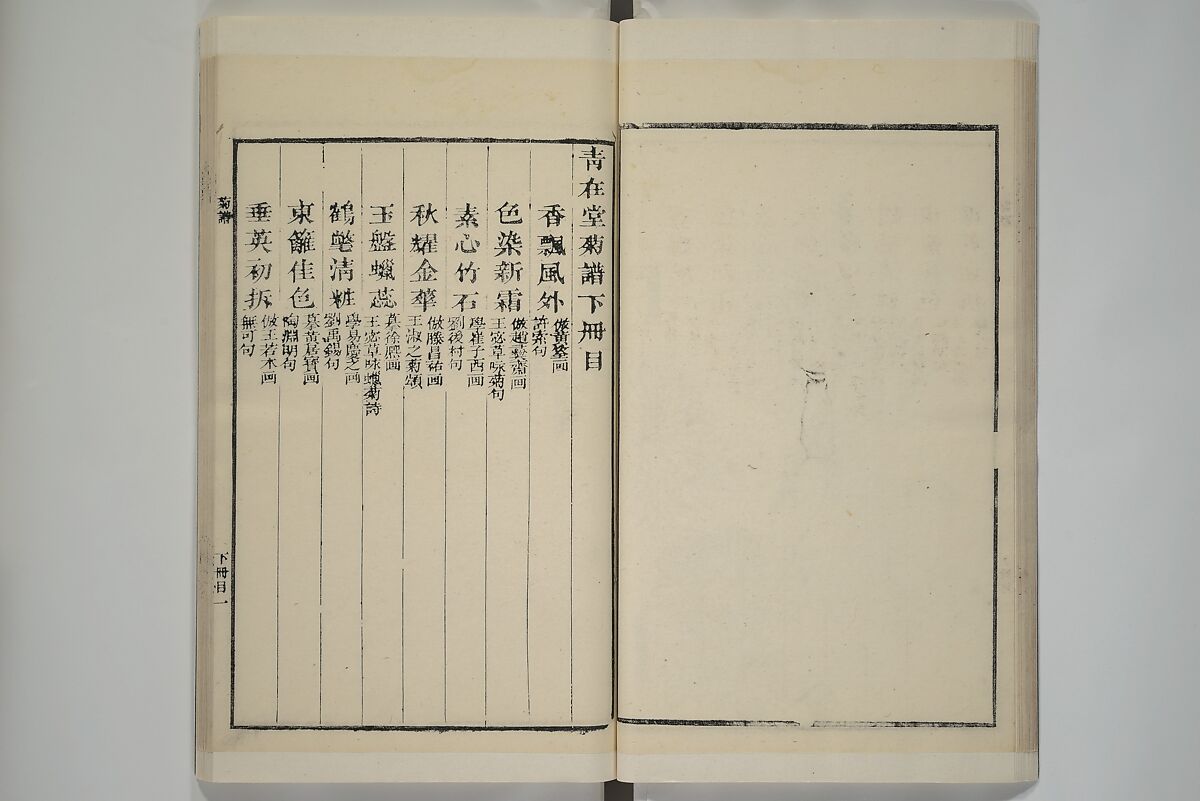 青在堂菊譜下冊目
香飄風外
倣黃筌画
許棐句
色染新霜
倣趙彝齋画
王宓草咏菊句
素心竹石
學崔子西画
劉後村句
秋耀金華
倣滕昌祐画
王淑之菊頌
玉盤蠟蕊
摹徐熙画
王宓草咏蠟菊詩
鶴氅清粧
學易慶之画
劉禹錫句
東籬佳色
摹黃居寶画
陶淵明句
垂英初拆
倣王若水画
無可句
菊譜
下冊目一